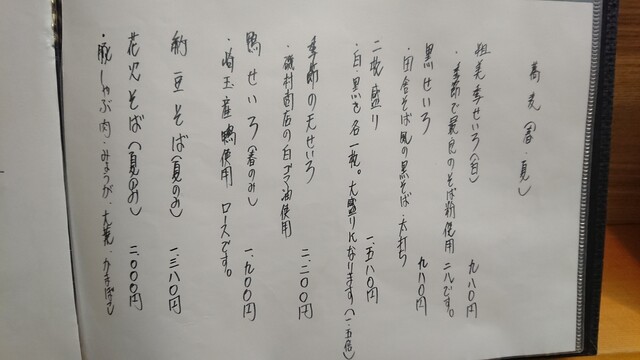 蕎麦(春・夏)
粗美季せいろ(白) 九八〇円
・季節で最良のそば粉使用 二八です。
黒せいろ 九八〇円
・田舎そば風の黒そば・太打ち
二枚盛り 一、五八〇円
・白・黒を各一枚。大盛りになります(一・五倍)
季節の天せいろ 二、二〇〇円
・磯村商店の白ゴマ油使用
鴨せいろ(春のみ) 一、九〇〇円
・埼玉産鴨使用 ロースです。
納豆そば(夏のみ) 一、三八〇円
花火そば(夏のみ) 二、〇〇〇円
・豚しゃぶ肉・みょうが・大葉・